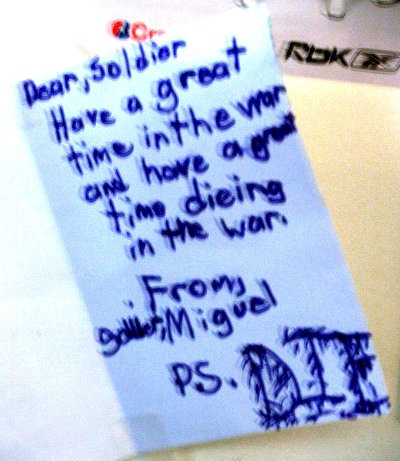 Dear, Soldier
RBK
Have a great
time in the war
and have a great
time dieing
in the war.
From,
Miguel
P.S. DIE